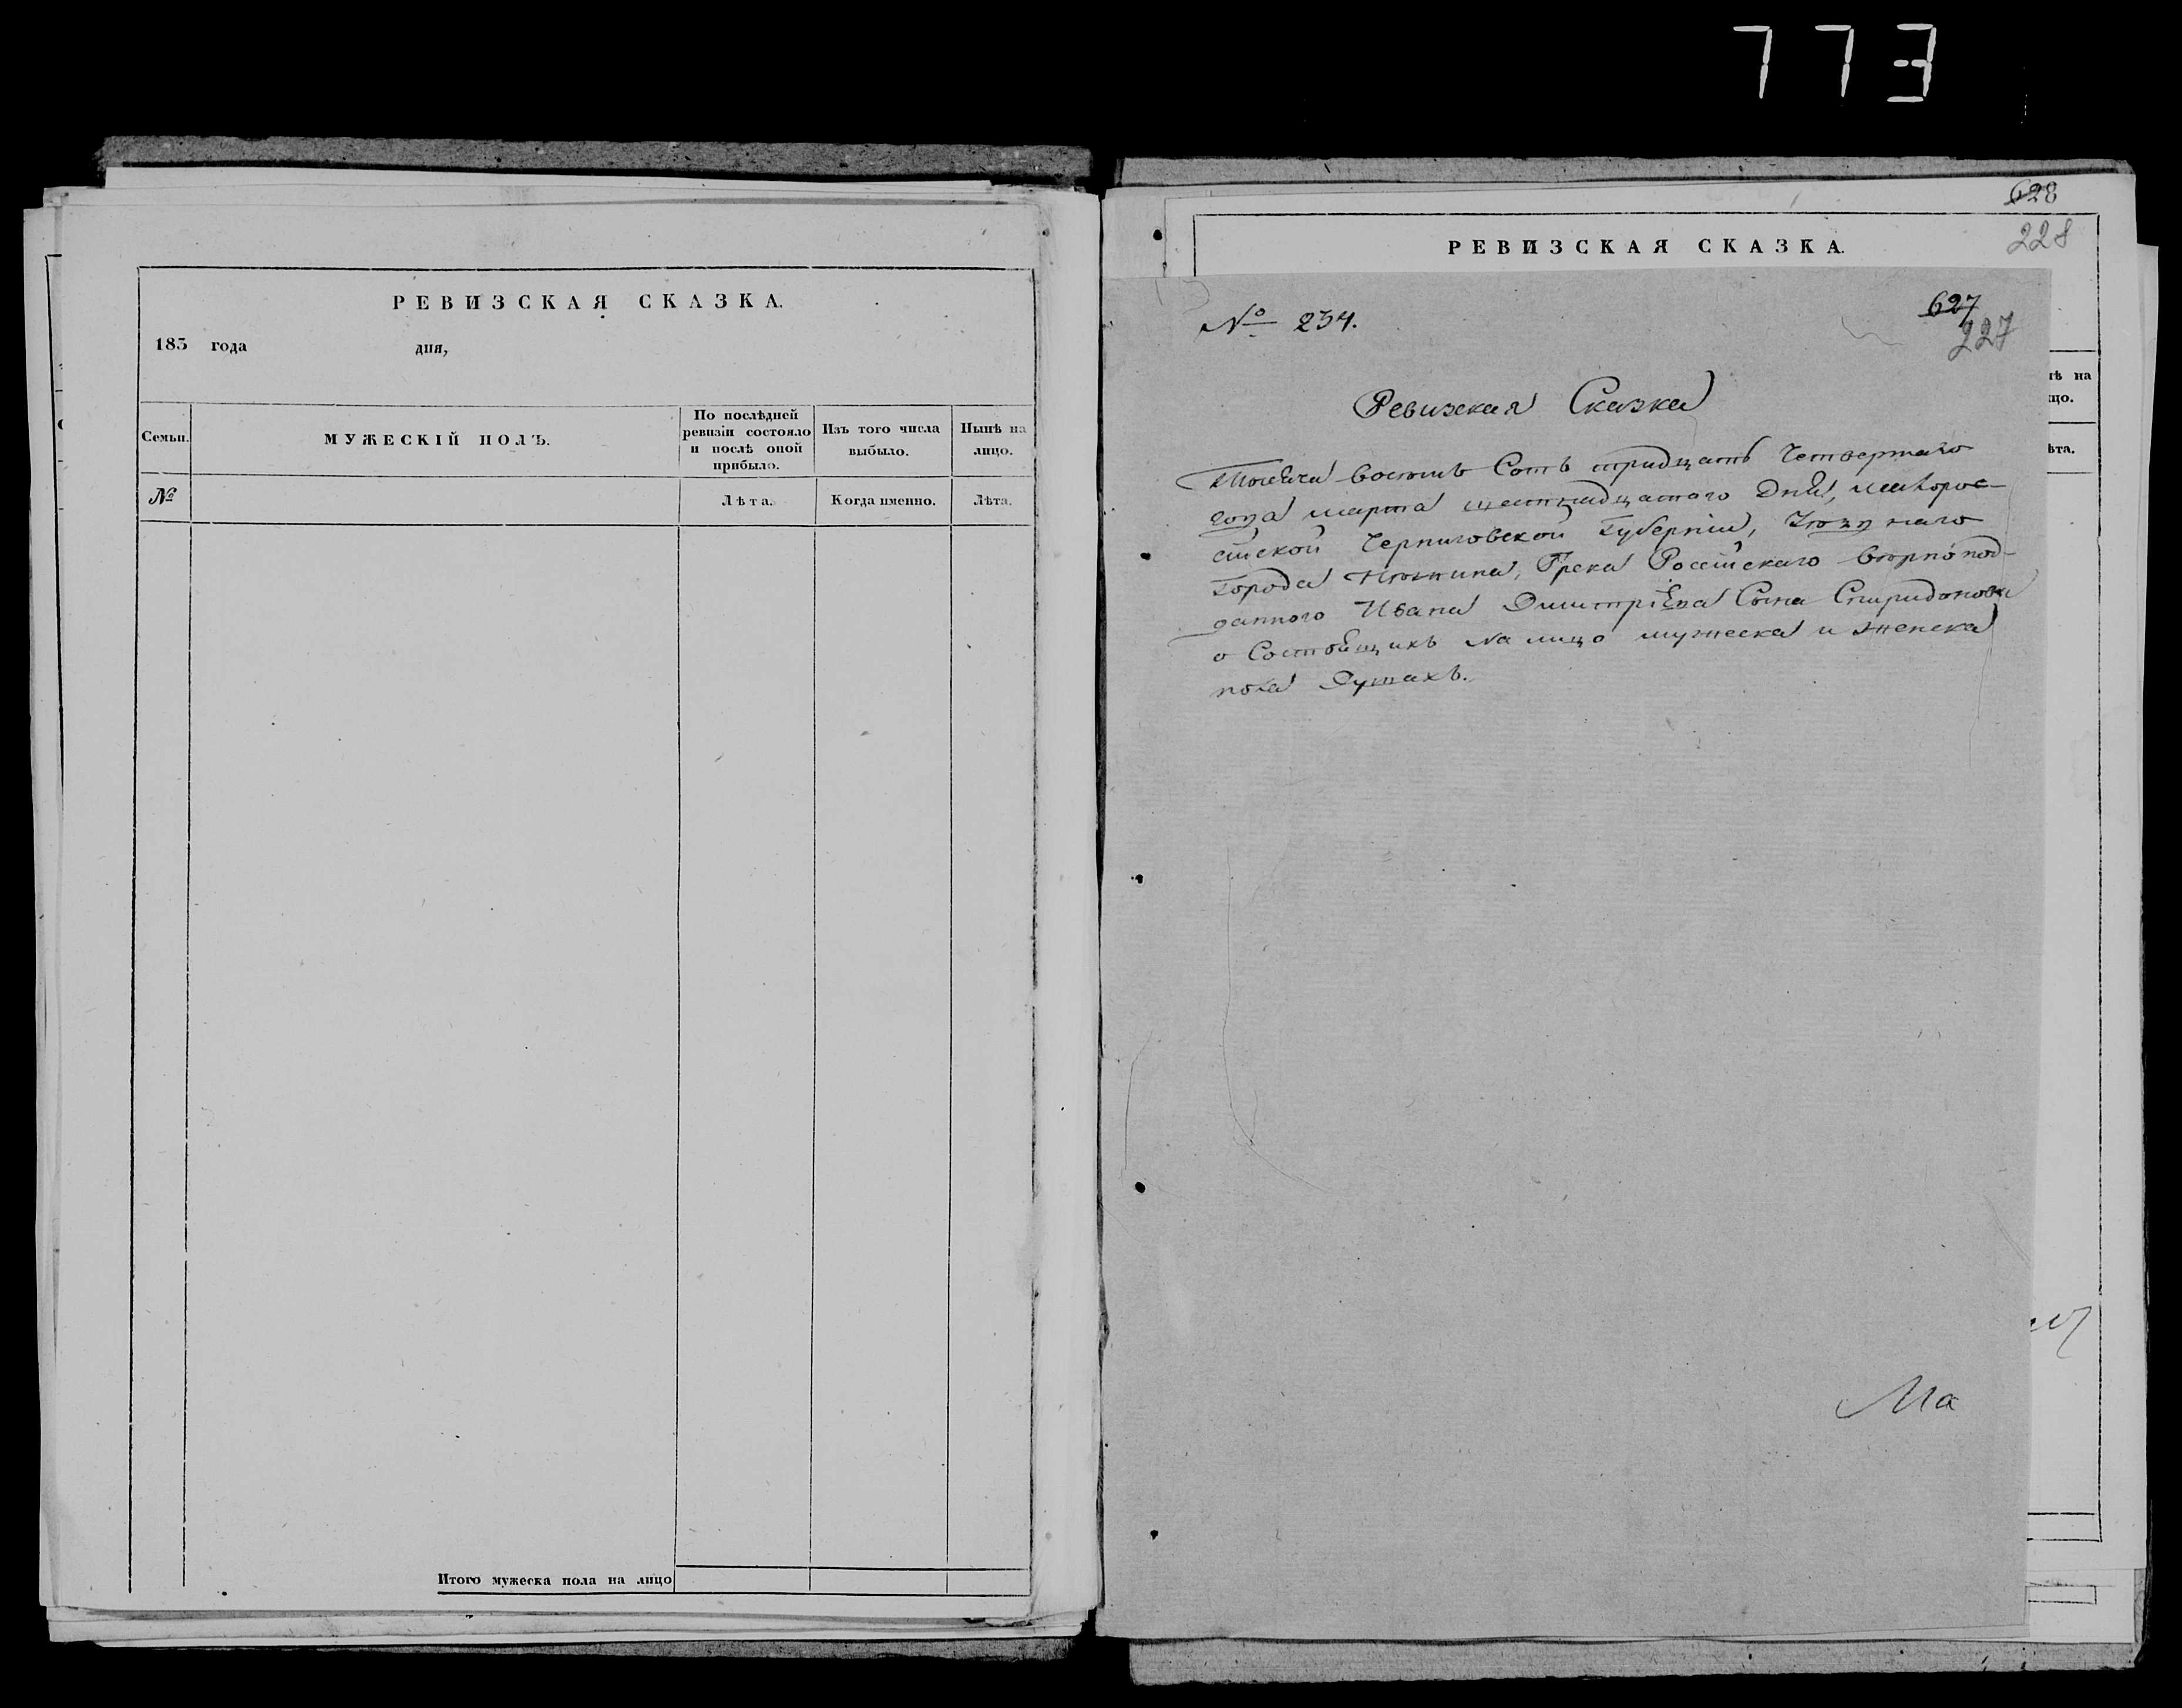 773
РЕВИЗСКАЯ СКАЗКА.
183 года дня,
Семьи.
МУЖЕСКІЙ ПОЛЪ.
По послѣдней
ревизіи состояло
и послѣ оной
прибыло.
Изъ того числа
выбыло.
Нынѣ на
лицо.
№
Лѣта.
Когда именно.
Лѣта.
Итого мужеска пола на лицо
628
228
РЕВИЗСКАЯ СКАЗКА.
тѣ на
цо.
ѣта.
627
227
№ 234.
Ревизская Сказка
Тысеча восемъ Сотъ тридцать Четвертаго
года марта шестнадцатого Дня, малорос-
ейской Черниговской Губерніи,
города Нѣжина, Грека Росейскаго вѣрнопод-
данного Ивана Димитріева Сына Спиридонова
о Состоящихъ на лицо мужеска и женска
пола Душахъ.
Ма